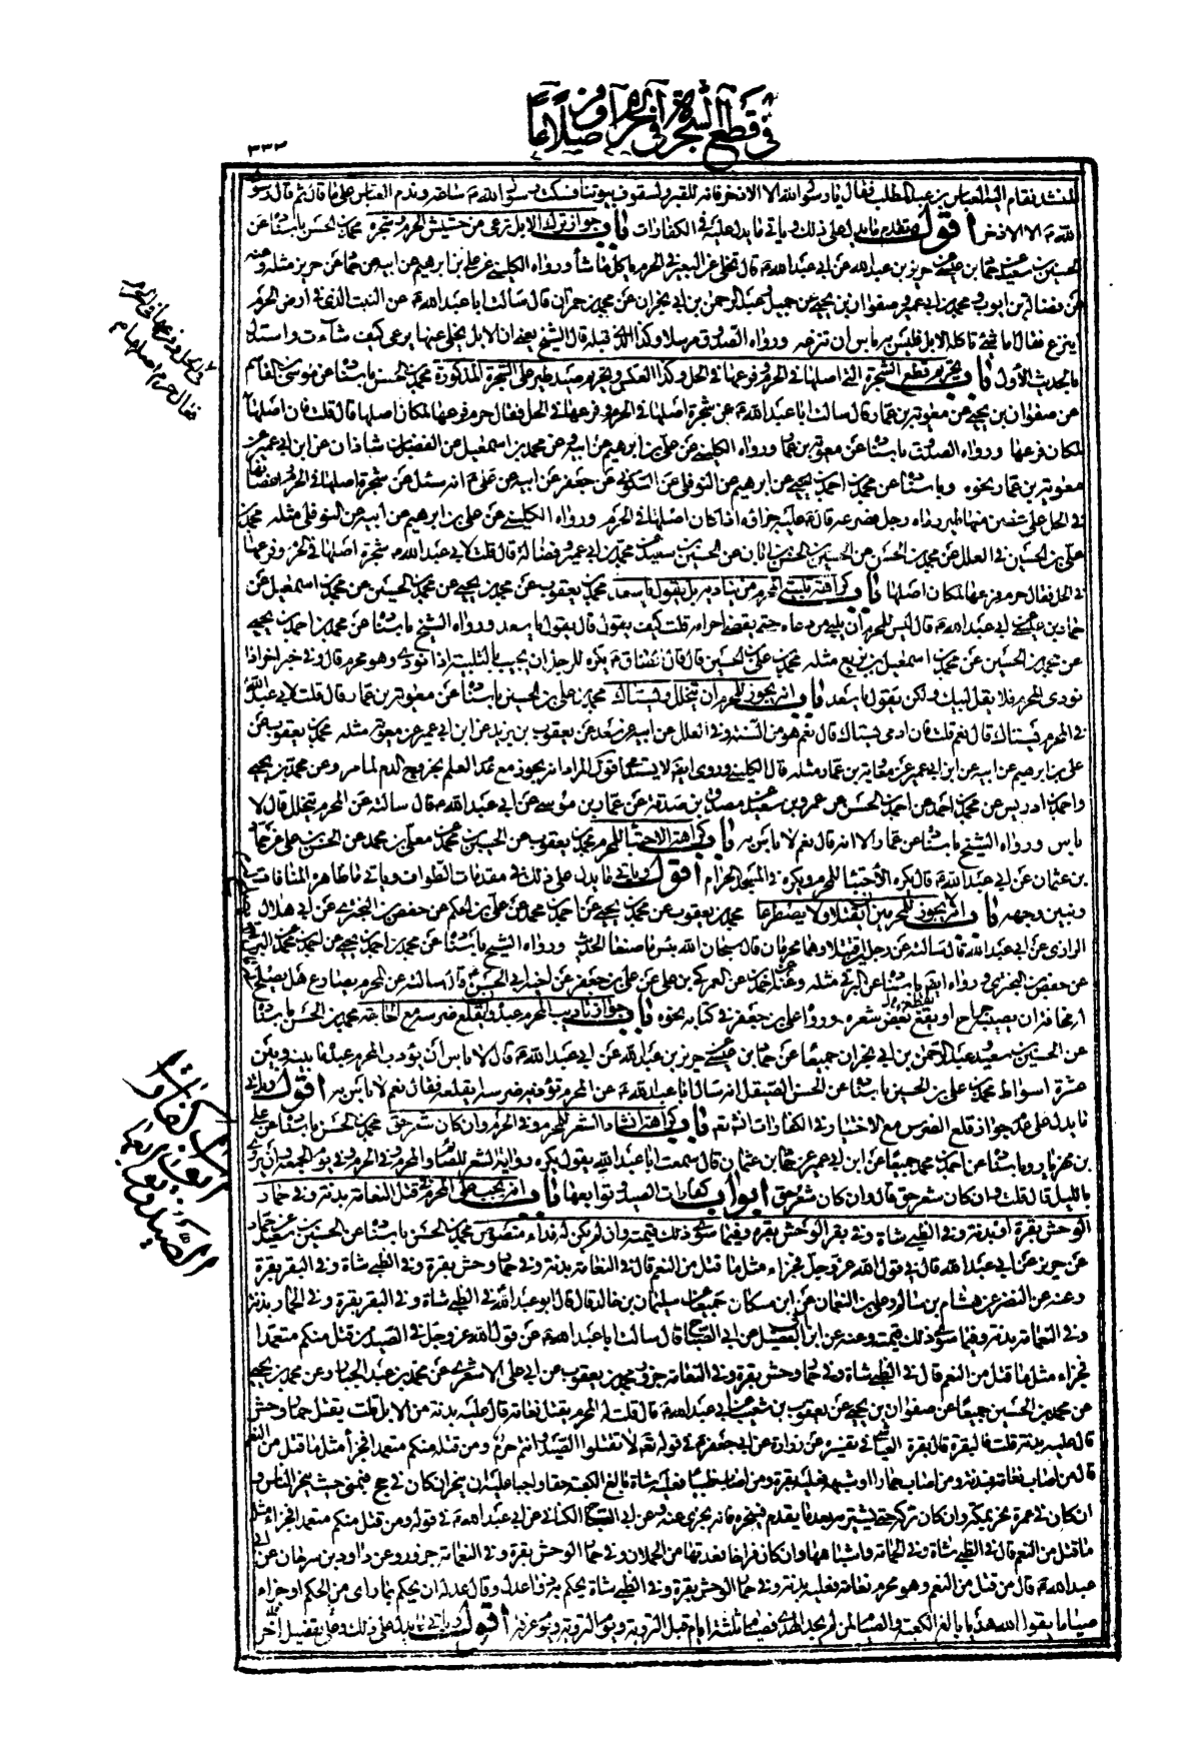 في قطع الشجرة في الحرم
٣٣٣
فقام اليه العباس بن عبد المطلب فقال يا رسول الله الا الاذخر فانه للقبر ولسقوف بيوتنا فسكت رسول الله ساعة وندم العباس على ما قال ثم قال رسول
الله الا الاذخر اقول وتقدم ما يدل على ذلك وياتي ما يدل عليه في الكفارات باب جواز ترك الابل ترعى من حشيش الحرم وشجره محمد بن الحسن باسناده عن
الحسين بن سعيد عن حماد بن عيسى عن حريز بن عبد الله عن ابي عبد الله قال تخلى عن البعير في الحرم ياكل ما شاء ورواه الكليني عن علي بن ابراهيم عن ابيه عن حماد عن حريز مثله وعنه
عن فضالة بن ايوب ومحمد بن ابي عمير وصفوان بن يحيى عن جميل وعبد الرحمن بن ابي نجران عن محمد بن حمران قال سالت ابا عبد الله عن النبت الذي في ارض الحرم
اينزع فقال اما شيء تاكله الابل فليس به باس ان تنزعه ورواه الصدوق مرسلا وكذا الذي قبله قال الشيخ يعني ان الابل يخلى عنها يرعى كيف شاءت واستدل
بالحديث الاول باب تحريم قطع الشجرة التي اصلها في الحرم وفرعها في الحل وكذا العكس وتحريم صيد طير على الشجرة المذكورة محمد بن الحسن باسناده عن موسى بن القاسم
عن صفوان بن يحيى عن معوية بن عمار قال سالت ابا عبد الله عن شجرة اصلها في الحرم وفرعها في الحل فقال حرم فرعها لمكان اصلها قال قلت فان اصلها
لمكان فرعها ورواه الصدوق باسناده عن معوية بن عمار ورواه الكليني عن علي بن ابراهيم عن ابيه عن محمد بن اسمعيل عن الفضل بن شاذان عن ابن ابي عمير عن
معوية بن عمار نحوه وباسناده عن محمد بن احمد بن يحيى عن ابراهيم عن النوفلي عن السكوني عن جعفر عن ابيه عن علي انه سئل عن شجرة اصلها في الحرم واغصانها
في الحل على غصن منها طير رماه رجل فصرعه قال عليه جزاؤه اذا كان اصلها في الحرم ورواه الكليني عن علي بن ابراهيم عن ابيه عن النوفلي مثله محمد بن
علي بن الحسين في العلل عن محمد بن الحسن عن الحسين بن الحسن بن ابان عن الحسين بن سعيد عن محمد بن ابي عمير وفضالة قال قلت لابي عبد الله شجرة اصلها في الحرم وفرعها
في الحل فقال حرم فرعها لمكان اصلها باب كراهة تلبية المحرم من يناديه بل يقول يا سعد محمد بن يعقوب عن محمد بن يحيى عن محمد بن الحسين عن محمد بن اسمعيل عن
حماد بن عيسى عن ابي عبد الله قال ليس للمحرم ان يلبي من دعاه حتى يقضي احرامه قلت كيف يقول قال يقول يا سعد ورواه الشيخ باسناده عن محمد بن احمد بن يحيى
عن محمد بن الحسين عن محمد بن اسمعيل بن بزيع مثله محمد بن علي بن الحسين قال قال الصادق يكره للرجل ان يجيب بالتلبية اذا نودي وهو محرم قال وفي خبر اخر اذا
نودي المحرم فلا يقل لبيك ولكن يقول يا سعد باب انه يجوز للمحرم ان يتخلل ويستاك محمد بن علي بن الحسين باسناده عن معوية بن عمار قال قلت لابي عبد الله
في المحرم يستاك قال نعم قلت فان ادمى يستاك قال نعم هو من السنة وفي العلل عن ابيه عن سعد عن يعقوب بن يزيد عن ابن ابي عمير عن معوية مثله محمد بن يعقوب عن
علي بن ابراهيم عن ابيه عن ابن ابي عمير عن معاوية بن عمار مثله قال الكليني وروي ايضا لا يستدمي اقول المراد انه يجوز مع عدم العلم بخروج الدم لما مر وعن محمد بن يحيى
واحمد بن ادريس عن محمد بن احمد عن احمد بن الحسن عن عمرو بن سعيد عن مصدق بن صدقة عن عمار بن موسى عن ابي عبد الله قال سالته عن المحرم يتخلل قال لا
باس ورواه الشيخ باسناده عن عمار الا انه قال نعم لا باس به باب كراهة الاحتباء للمحرم محمد بن يعقوب عن الحسين بن محمد عن معلى بن محمد عن الحسن بن علي عن حماد
بن عثمان عن ابي عبد الله قال يكره الاحتباء للمحرم ويكره في المسجد الحرام اقول وياتي ما يدل على ذلك في مقدمات الطواف وياتي ما ظاهره المنافات
ونبين وجهه باب انه لا يجوز للمحرمين ان يقتتلا ولا يصطرعا محمد بن يعقوب عن محمد بن يحيى عن احمد بن محمد عن علي بن الحكم عن حفص بن البختري عن ابي هلال
الرازي عن ابي عبد الله قال سالته عن رجلين اقتتلا وهما محرمان قال سبحان الله بئس ما صنعا الحديث ورواه الشيخ باسناده عن محمد بن احمد بن يحيى عن احمد بن محمد البرقي
عن حفص بن البختري ورواه ايضا باسناده عن البرقي مثله وعنه عن العمركي بن علي عن علي بن جعفر عن اخيه ابي الحسن قال سالته عن المحرم يصارع هل يصلح
له قال مخافة ان يصيبه جراح او يقع بعض شعره ورواه علي بن جعفر في كتابه نحوه باب جواز تاديب المحرم عبده وقلع ضرسه مع الحاجة محمد بن الحسن باسناده
عن الحسين بن سعيد وعبد الرحمن بن ابي نجران جميعا عن حماد بن عيسى عن حريز بن عبد الله عن ابي عبد الله قال لا باس ان يؤدب المحرم عبده ما بينه وبين
عشرة اسواط محمد بن علي بن الحسين باسناده عن الحسن الصيقل انه سال ابا عبد الله عن المحرم تؤذيه ضرسه ايقلعه فقال نعم لا باس به اقول وياتي
ما يدل على عدم جواز قلع الضرس مع الاختيار في الكفارات ان شاء الله باب كراهة انشاد الشعر للمحرم وفي الحرم وان كان شعر حق محمد بن الحسن باسناده عن علي
بن مهزيار وباسناده عن احمد بن محمد جميعا عن ابن ابي عمير عن حماد بن عثمان قال سمعت ابا عبد الله يقول يكره رواية الشعر للصائم والمحرم وفي الحرم وفي يوم الجمعة وان يروى
بالليل قال قلت وان كان شعر حق قال وان كان شعر حق ابواب كفارات الصيد وتوابعها باب انه يجب على المحرم في قتل النعامة بدنة وفي حمار
الوحش بقرة او بدنة وفي الظبي شاة وفي بقر الوحش بقرة وفيما سوى ذلك قيمته وان لم يكن له فداء منصوص محمد بن الحسن باسناده عن الحسين بن سعيد عن حماد
عن حريز عن ابي عبد الله قال في قول الله عز وجل فجزاء مثل ما قتل من النعم قال في النعامة بدنة وفي حمار وحش بقرة وفي الظبي شاة وفي البقر بقرة
وعنه عن النضر عن هشام بن سالم وعلي بن النعمان عن ابن مسكان جميعا عن سليمان بن خالد قال قال ابو عبد الله في الظبي شاة وفي البقر بقرة وفي الحمار بدنة
وفي النعامة بدنة وفيما سوى ذلك قيمته وعنه عن ابن الفضيل عن ابي الصباح قال سالت ابا عبد الله عن قول الله عز وجل في الصيد من قتل منكم متعمدا
فجزاء مثل ما قتل من النعم قال في الظبي شاة وفي حمار وحش بقرة وفي النعامة جزور محمد بن يعقوب عن ابي علي الاشعري عن محمد بن عبد الجبار وعن محمد بن يحيى
عن محمد بن الحسين جميعا عن صفوان بن يحيى عن يعقوب بن شعيب عن ابي عبد الله قال قلت له المحرم يقتل نعامة قال عليه بدنة من الابل قلت يقتل حمار وحش
قال عليه بدنة قلت فالبقرة قال بقرة العياشي في تفسيره عن زرارة عن ابي جعفر في قوله تعالى لا تقتلوا الصيد وانتم حرم ومن قتله منكم متعمدا فجزاء مثل ما قتل من النعم
قال من اصاب نعامة فبدنة ومن اصاب حمارا او شبهه فعليه بقرة ومن اصاب ظبيا فعليه شاة بالغ الكعبة حقا واجبا عليه ان ينحر ان كان في حج فبمنى حيث ينحر الناس
ان كان في عمرة نحر بمكة وان كان تركه حتى يشتريه بعد ما يقدم فينحره فانه يجزي عنه وعن ابي الصباح الكناني عن ابي عبد الله في قوله ومن قتل منكم متعمدا فجزاء مثل
ما قتل من النعم قال في الظبي شاة وفي الحمامة واشباهها وان كان فراخا فعدتها من الحملان وفي حمار الوحش بقرة وفي النعامة جزور وعن داود بن سرحان عن ابي
عبد الله قال من قتل من النعم وهو محرم نعامة فعليه بدنة وفي حمار الوحش بقرة وفي الظبي شاة يحكم به ذوا عدل وقال عدله ان يحكم بما راى من الحكم او جزاء
صيام يقول الله هديا بالغ الكعبة والصيام لمن لم يجد الهدي فصيام ثلثة ايام قبل التروية ويوم التروية ويوم عرفة اقول وياتي ما يدل على ذلك وعلى تفصيل اخر
في الحل وفرعها في الحرم
فقال حرم اصلها
ابواب كفارات
الصيد وتوابعها